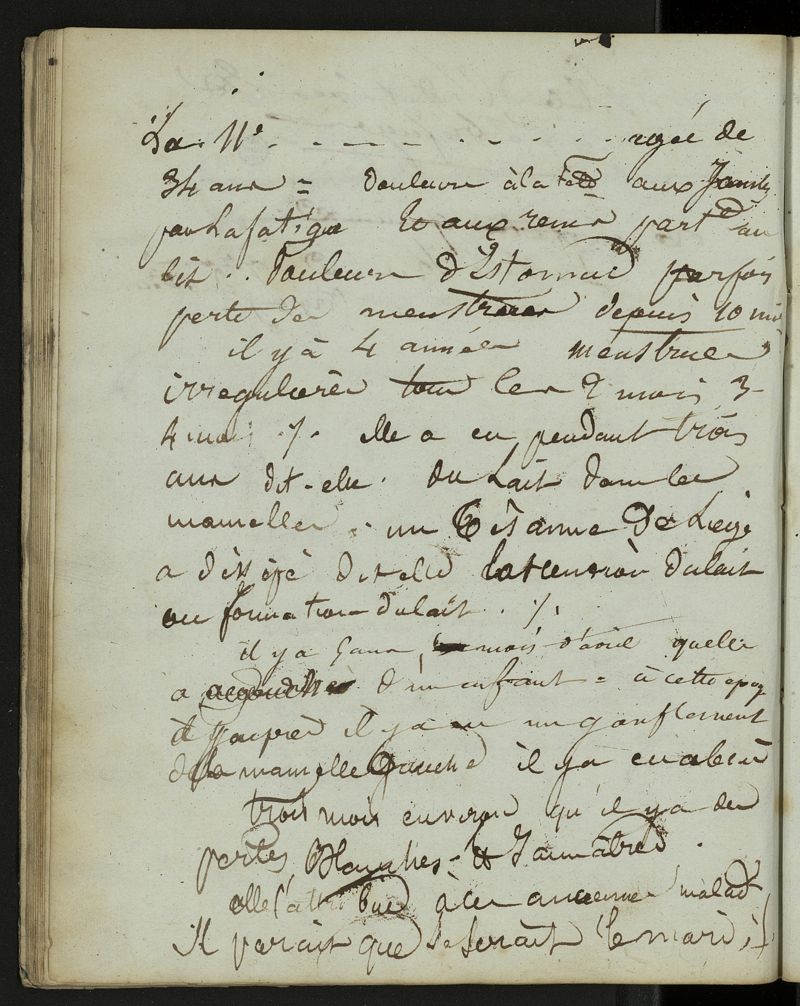 La . 11e . - . - - - . . . . . . agée de
34 ans = douleurs à la tete aux
par la fatigue & aux reins part au
lit . . Douleurs d'Estomac parfois
perte des menstrues depuis 10 mois
il y à 4 années menstrues
irregulieres tous les 2 mois 3-
4 mois ./. elle a eu pendant trois
ans dit-elle . du Lait dans les
mamelles . un Tisanne De Liege
a dit elle du lait
ou formation du lait . /.
il y a 5 ans mois d'aout quelle
a accouchée d'un enfant = à cette epoq
& après il y a eu un gonflement
de la mamelle Gauche il y a eu abcès
trois mois environ qu'il y a des
pertes Blanches & Jaunâtres .
elle l'attribue à ces anciennes malad
Il parait que se serait le mari